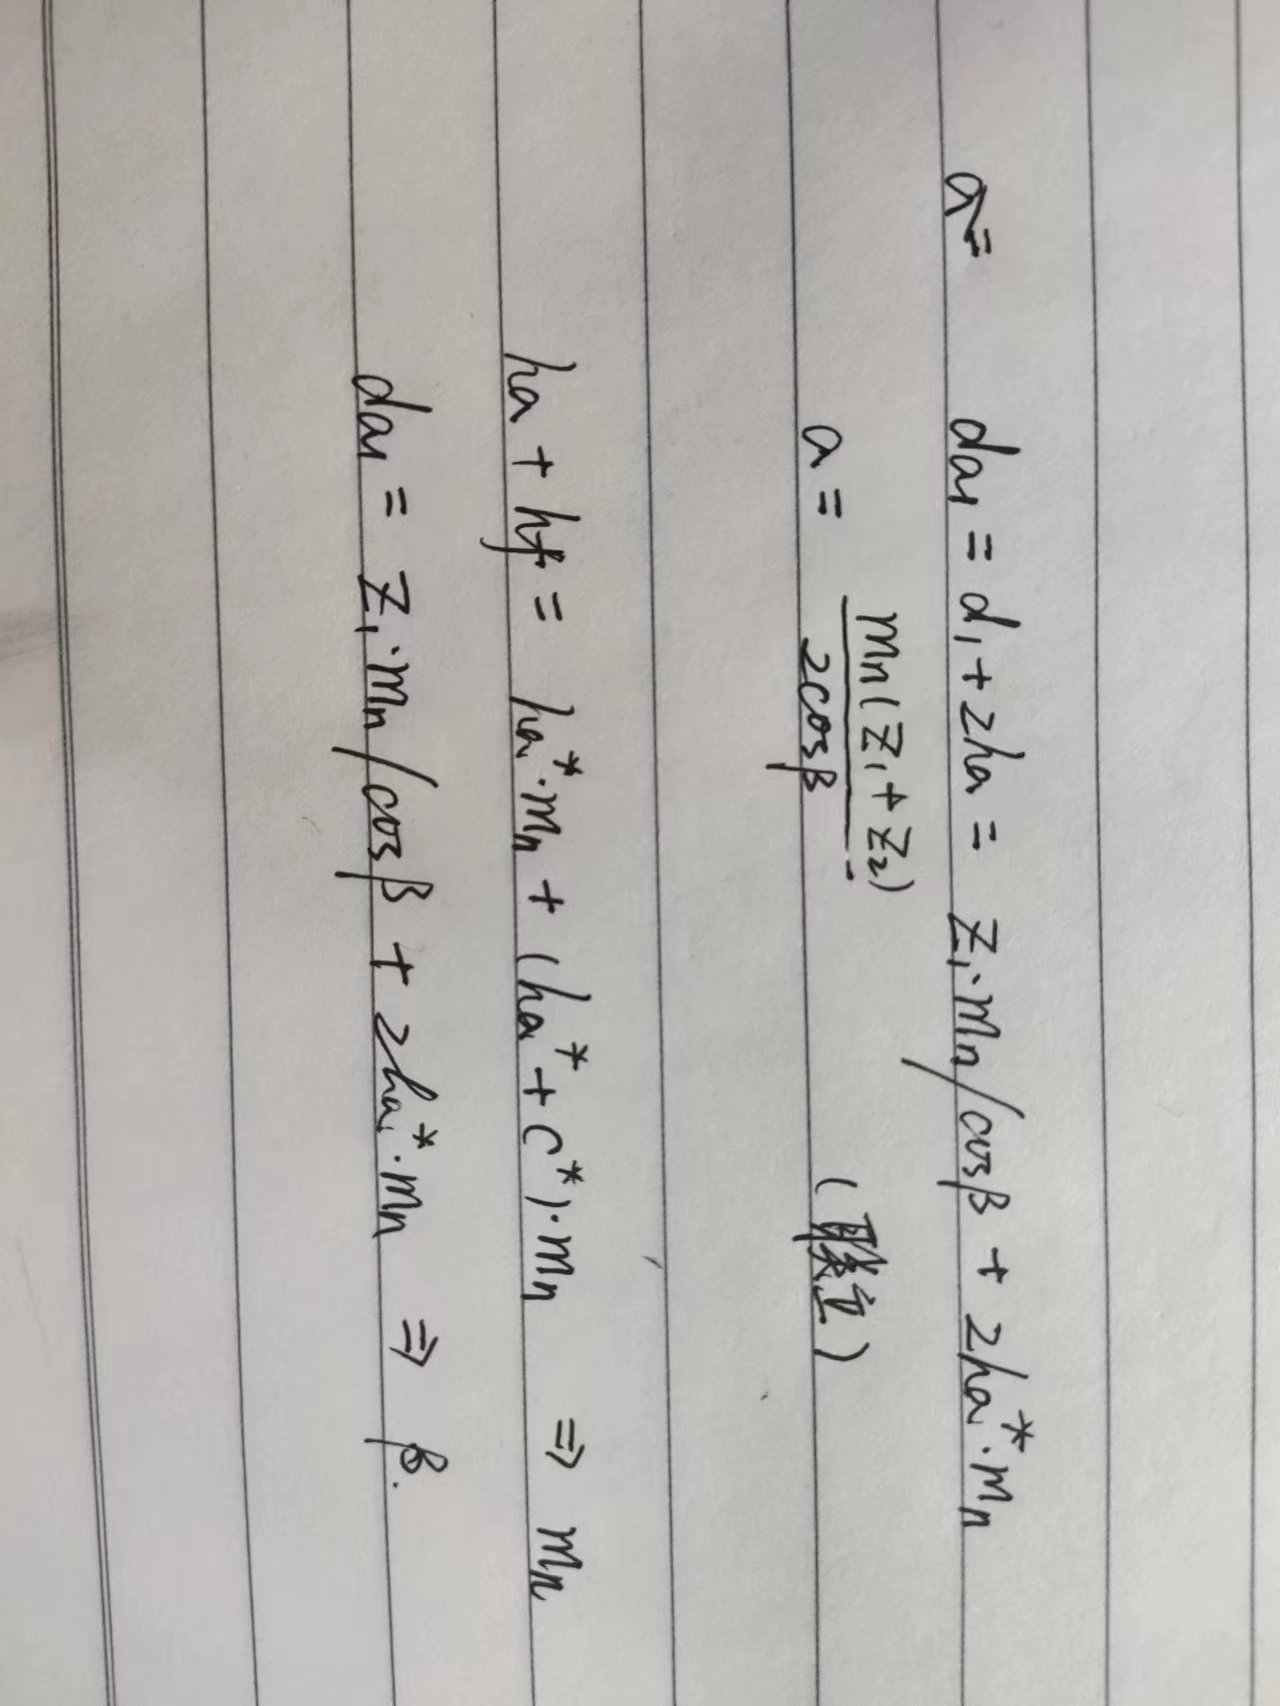 a=
da₁ = d₁ + 2ha = Z₁·mn/cosβ + 2ha*·mn
a = mn(Z₁+Z₂)/2cosβ (联立)
ha + hf = ha*·mn + (ha* + c*)·mn ⇒ mn
da₁ = Z₁·mn/cosβ + 2ha*·mn ⇒ β.